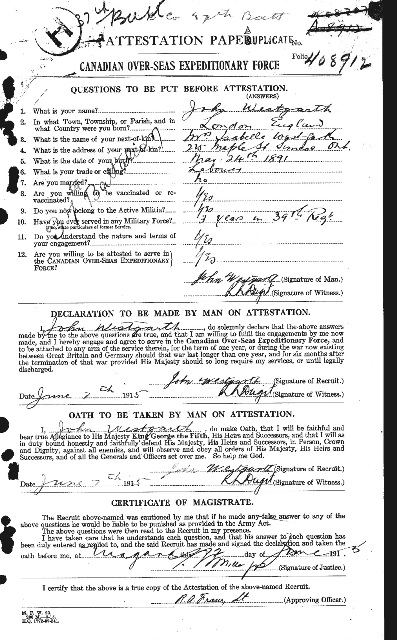 37th Batt
H
ATTESTATION PAPER
DUPLICATE
No.
Folio
408912
CANADIAN OVER-SEAS EXPEDITIONARY FORCE
QUESTIONS TO BE PUT BEFORE ATTESTATION.
(ANSWERS)
1. What is your name? John Westgarth
2. In what Town, Township, or Parish, and in what Country were you born? London England
3. What is the name of your next-of-kin? Mrs Isabella Westgarth
4. What is the address of your next-of-kin? Maple St Simcoe Ont
5. What is the date of your birth? May 24th 1891
6. What is your trade or calling? Labourer
7. Are you married? No
8. Are you willing to be vaccinated or re-vaccinated? Yes
9. Do you now belong to the Active Militia? Yes
10. Have you ever served in any Military Force? 3 years in 39th Regt
If so, state particulars of former Service.
11. Do you understand the nature and terms of your engagement? Yes
12. Are you willing to be attested to serve in the CANADIAN OVER-SEAS EXPEDITIONARY FORCE? Yes
John Westgarth (Signature of Man).
(Signature of Witness).
DECLARATION TO BE MADE BY MAN ON ATTESTATION.
I, John Westgarth, do solemnly declare that the above answers
made by me to the above questions are true, and that I am willing to fulfil the engagements by me now
made, and I hereby engage and agree to serve in the Canadian Over-Seas Expeditionary Force, and
to be attached to any arm of the service therein, for the term of one year, or during the war now existing
between Great Britain and Germany should that war last longer than one year, and for six months after
the termination of that war provided His Majesty should so long require my services, or until legally
discharged.
John Westgarth (Signature of Recruit).
Date June 7th 1915 (Signature of Witness)
OATH TO BE TAKEN BY MAN ON ATTESTATION.
I, John Westgarth, do make Oath, that I will be faithful and
bear true Allegiance to His Majesty King George the Fifth, His Heirs and Successors, and that I will as
in duty bound honestly and faithfully defend His Majesty, His Heirs and Successors, in Person, Crown
and Dignity, against all enemies, and will observe and obey all orders of His Majesty, His Heirs and
Successors, and of all the Generals and Officers set over me. So help me God.
John Westgarth (Signature of Recruit)
Date June 7th 1915 (Signature of Witness)
CERTIFICATE OF MAGISTRATE.
The Recruit above-named was cautioned by me that if he made any false answer to any of the
above questions he would be liable to be punished as provided in the Army Act.
The above questions were then read to the Recruit in my presence.
I have taken care that he understands each question, and that his answer to each question has
been duly entered as replied to, and the said Recruit has made and signed the declaration and taken the
oath before me, at Niagara this day of June 1915
(Signature of Justice)
I certify that the above is a true copy of the Attestation of the above-named Recruit.
(Approving Officer)